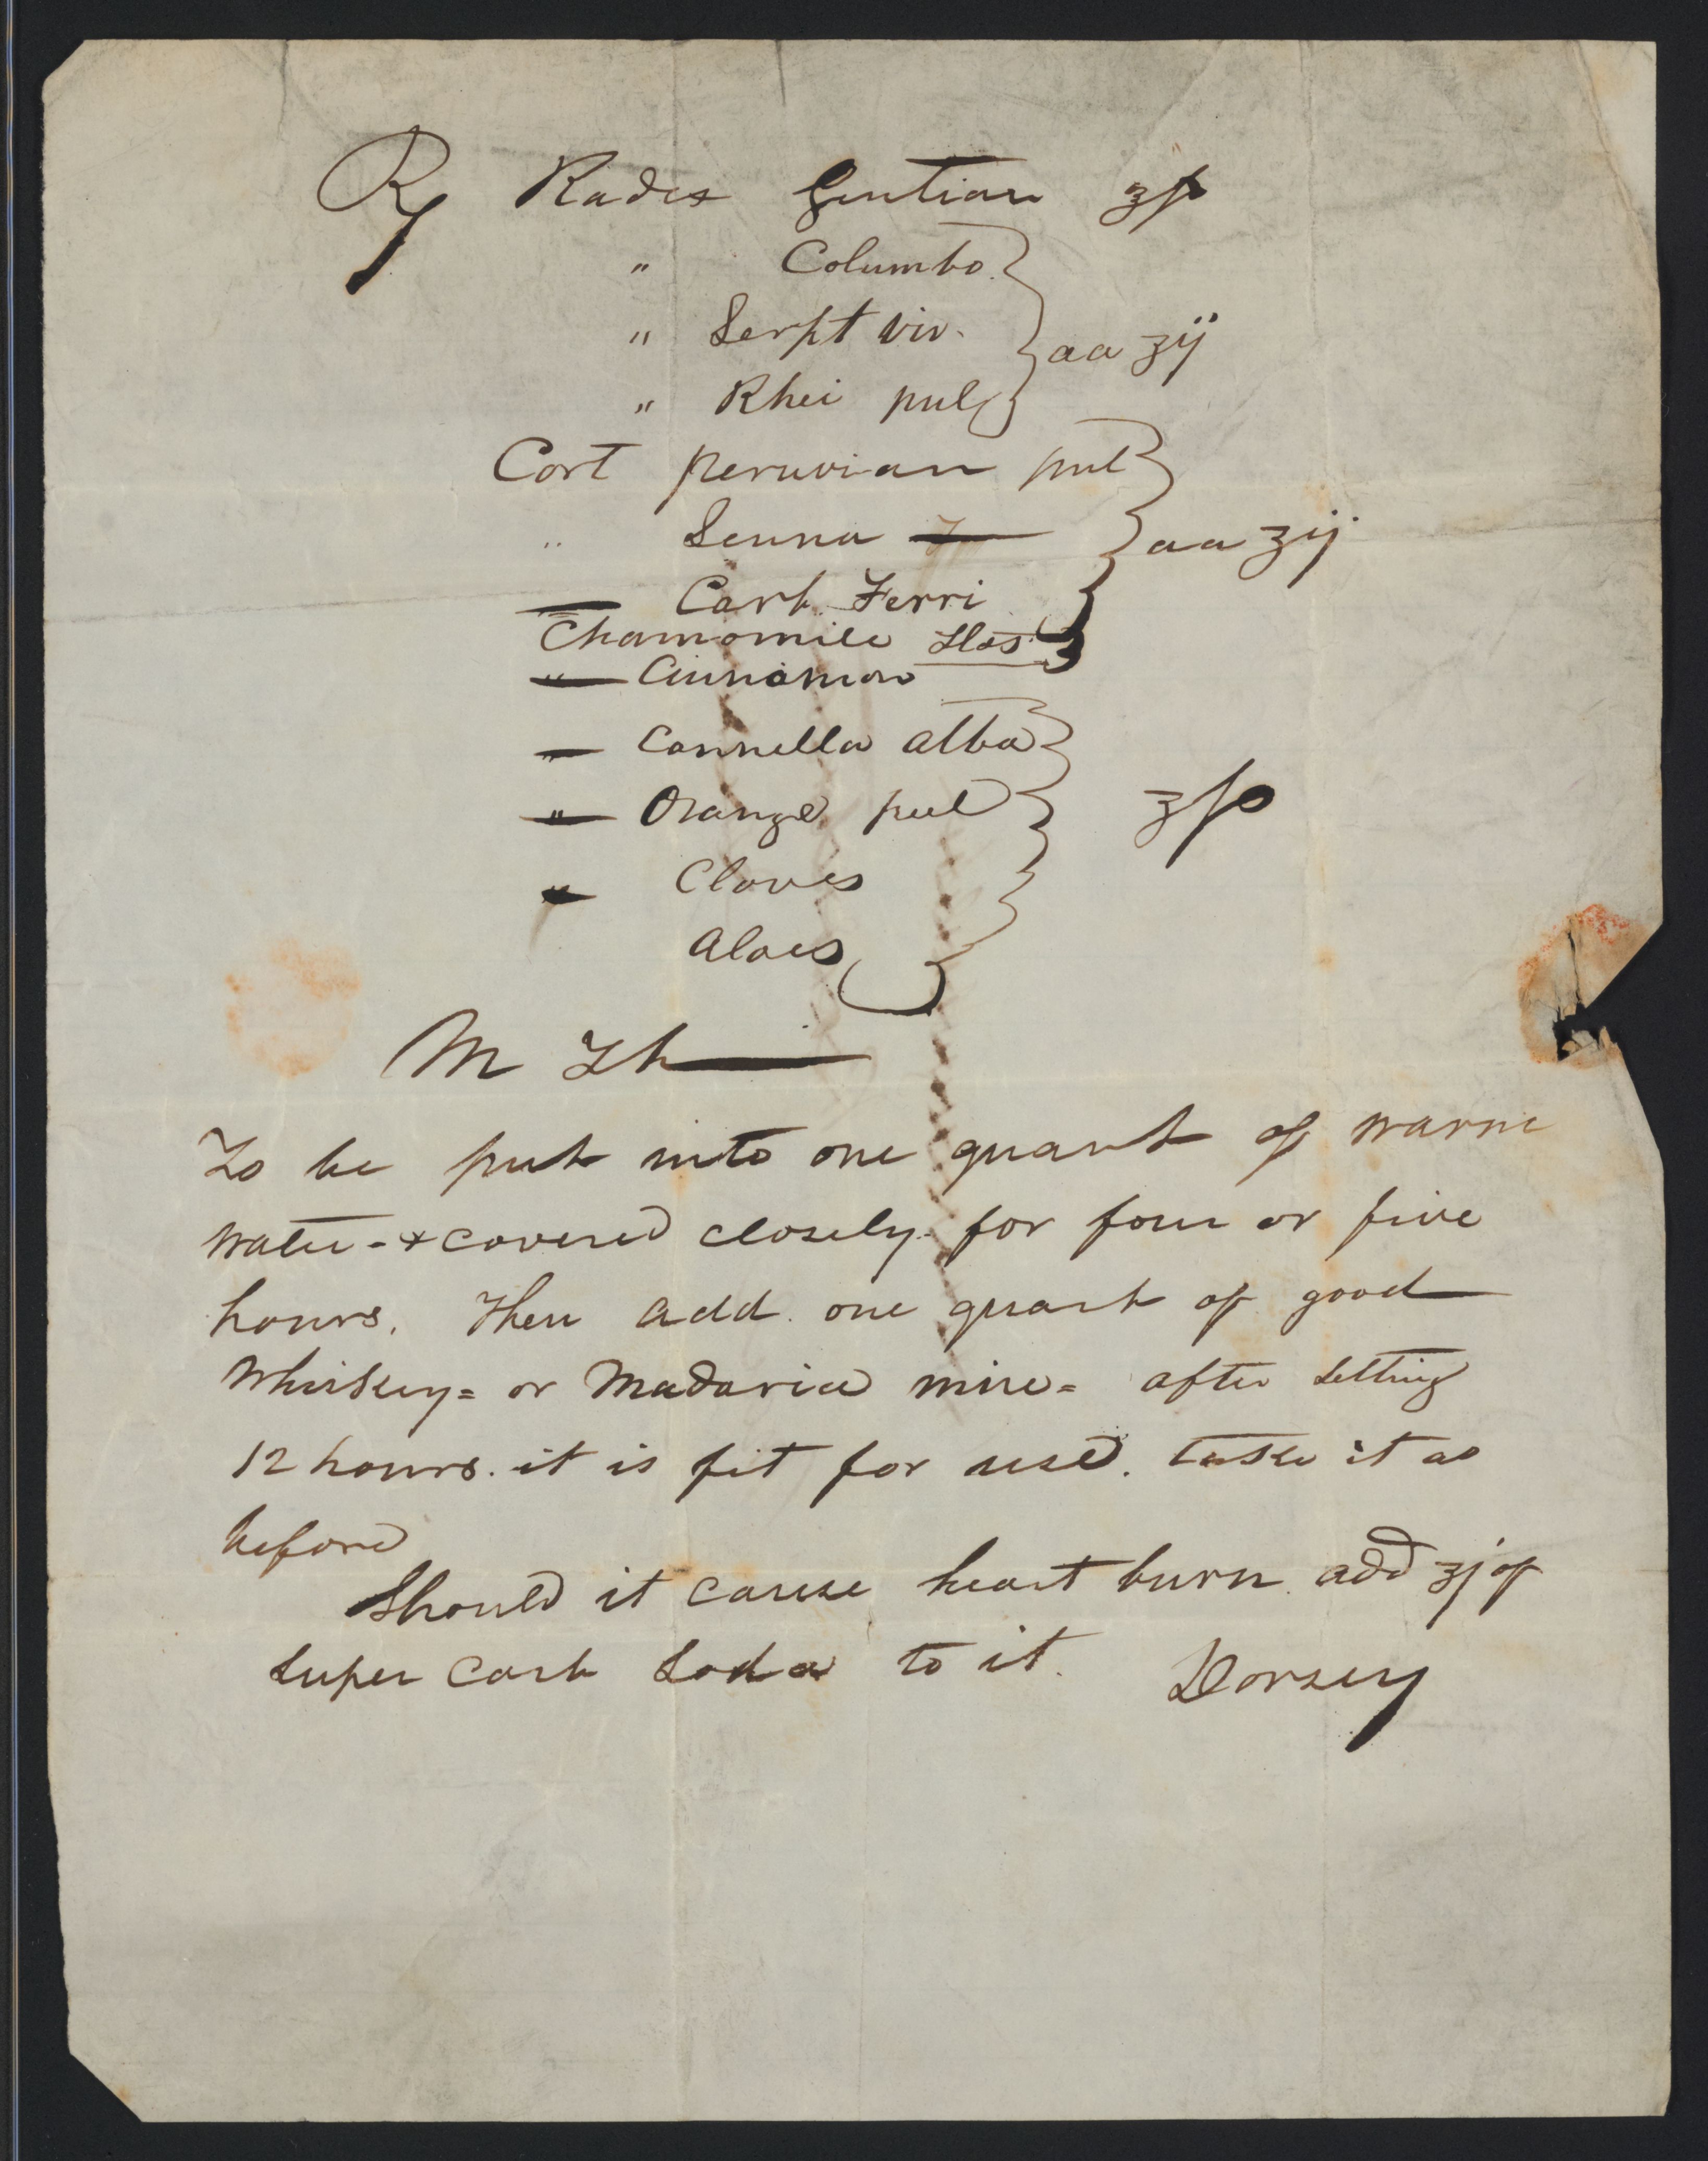 Rx Radix Gentian ʒſs
" Columbo
" Serpt Vir. aa ʒij
" Rhei pul
Cort peruvian pul
" Senna aa ʒij
Carb. Ferri
Chamomile Flos
Cinnamon
Cannella alba
Orange peel ʒſs
Cloves
Aloes
M Ft
To be put into one quart of warm
water - & covered closely. for four or five
hours. Then add one quart of good
Whiskey = or Madaria wine = after setting
12 hours. it is fit for use. take it as
before
Should it cause heart burn. add ʒj of
super carb Soda to it. Dorsey